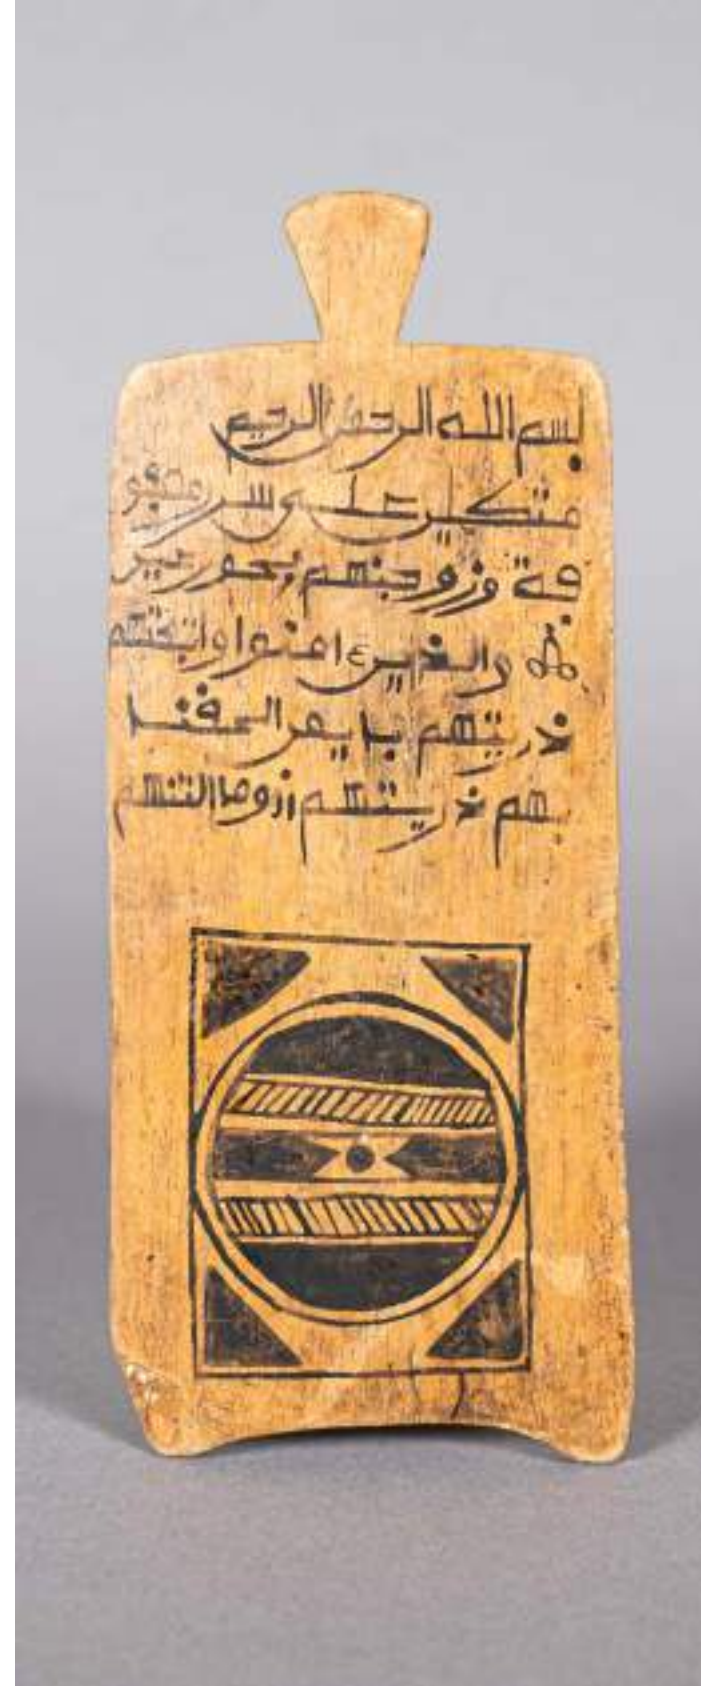 بسم الله الرحمن الرحيم
متكين على سرر مصفو
فة وزوجنهم بحور عين
والذين ءامنوا واتبعتهم
ذريتهم بايمن الحقنا
بهم ذريتهم وما التنهم